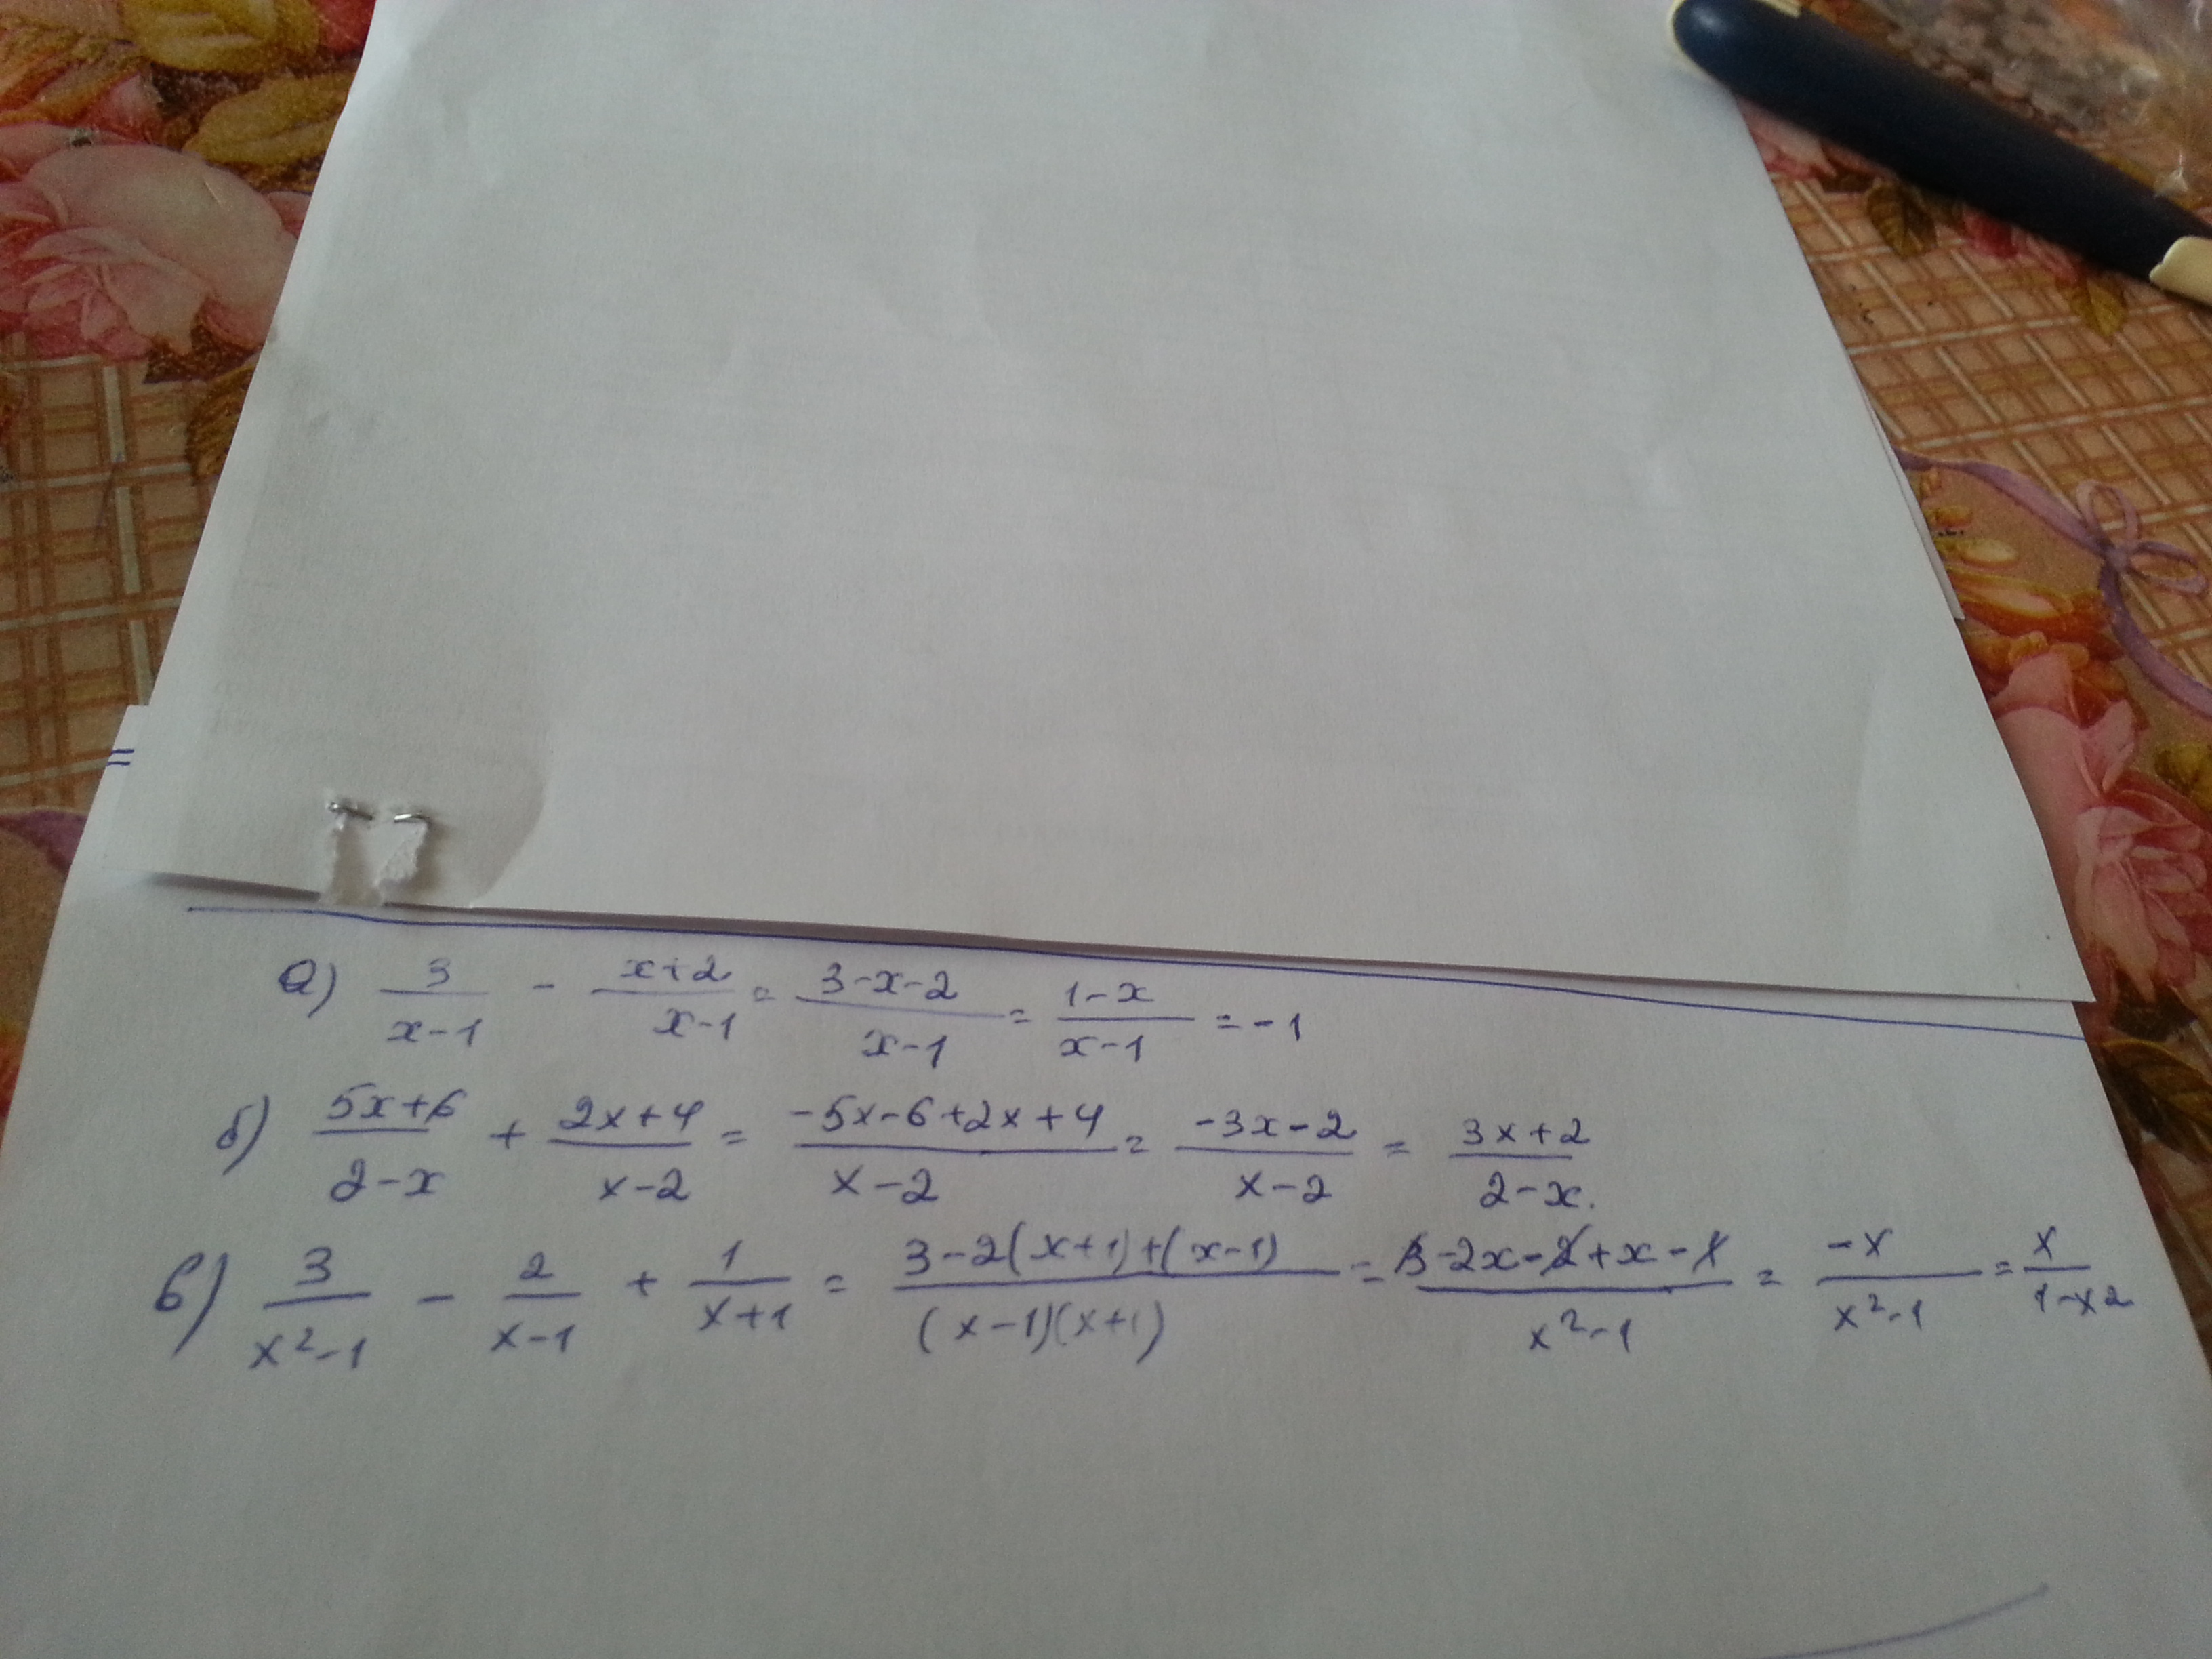 =
а) 3/(x-1) - (x+2)/(x-1) = (3-x-2)/(x-1) = (1-x)/(x-1) = -1
б) (5x+6)/(2-x) + (2x+4)/(x-2) = (-5x-6+2x+4)/(x-2) = (-3x-2)/(x-2) = (3x+2)/(2-x).
в) 3/(x²-1) - 2/(x-1) + 1/(x+1) = (3-2(x+1)+(x-1))/((x-1)(x+1)) = (3-2x-2+x-1)/(x²-1) = (-x)/(x²-1) = x/(1-x2)